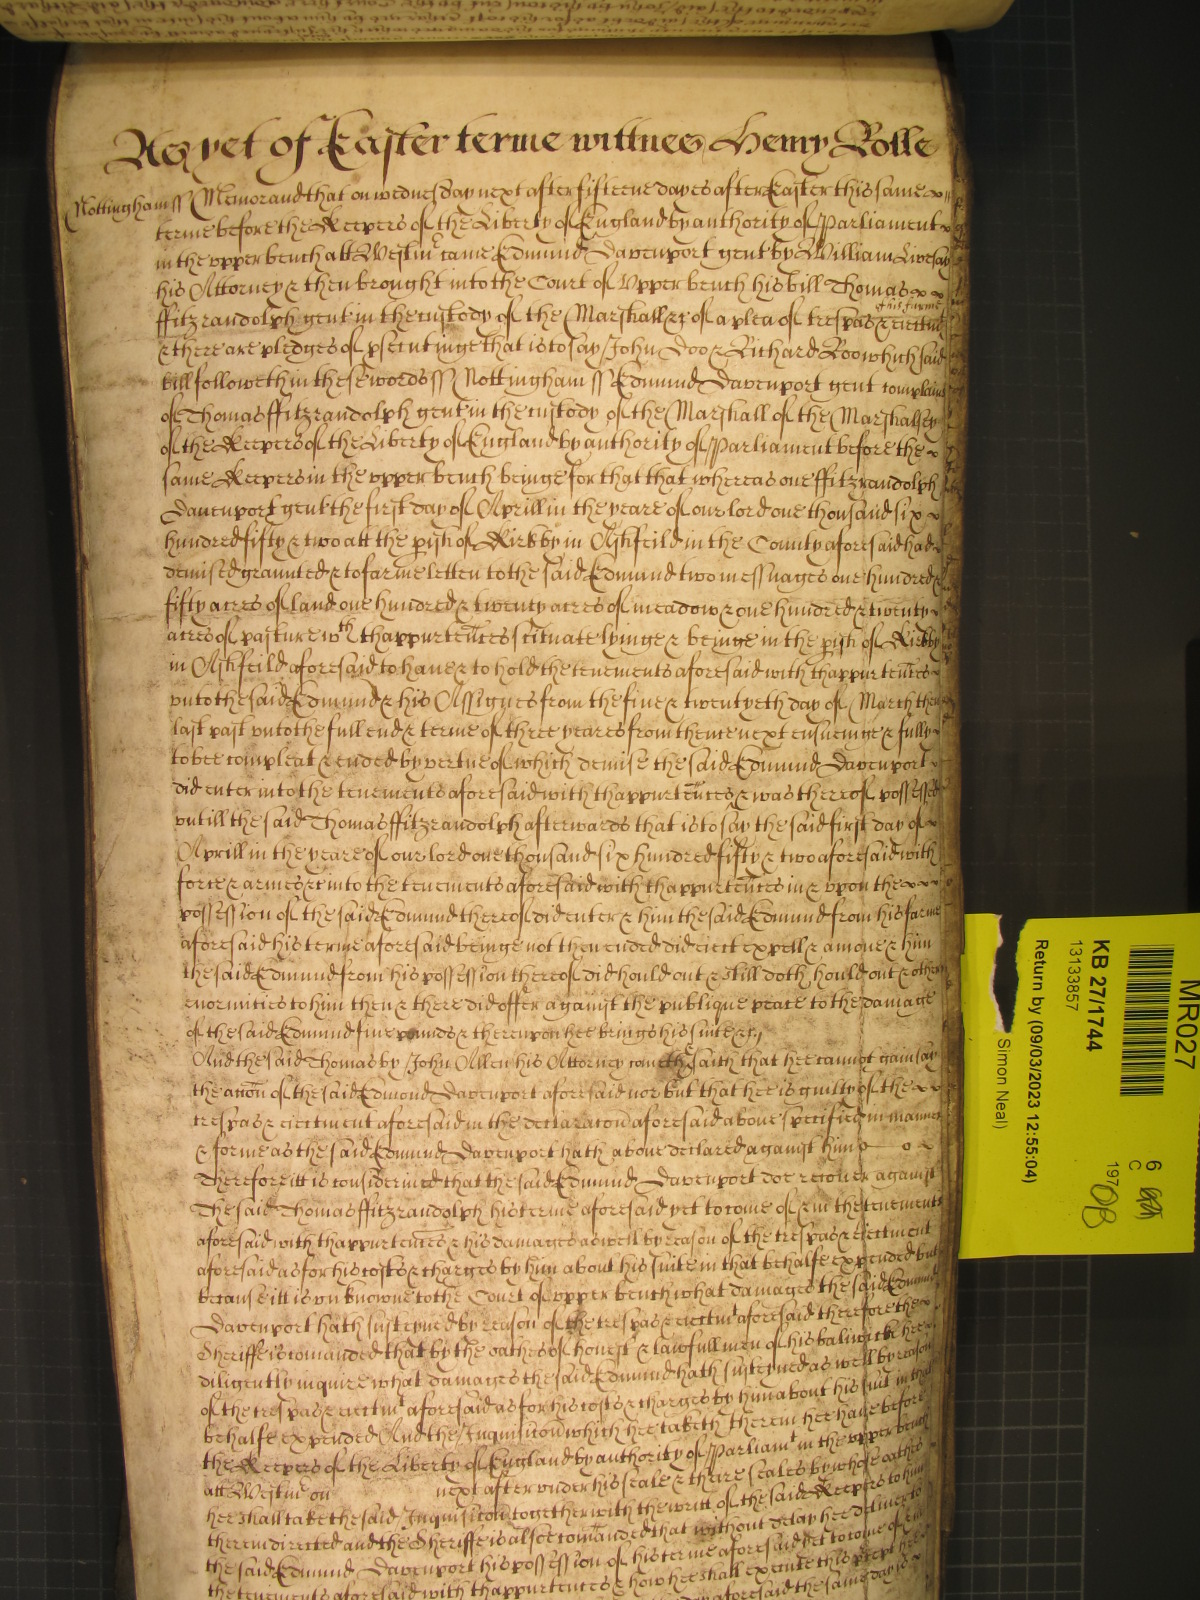 As yet of Easter terme wittnes Henry Rolle
Nottingham ss Memorand that on wednesday next after fifteene dayes after Easter this same
terme before the Keepers of the Liberty of England by authority of Parliament
in the upper bench att Westm came Edmund Davenport gent by William Livesay
his Attorney & then brought into the Court of Upper bench his bill Thomas
of his farme
ffitzrandolph gent in the custody of the Marshall &c of a plea of trespas & eiectmt
& there are pledges of psecutinge that is to say John Doo & Richard Roo which said
bill followeth in these words ss Nottingham ss Edmund Davenport gent complains
of Thomas ffitzrandolph gent in the custody of the Marshall of the Marshalsey
of the Keepers of the Liberty of England by authority of Parliament before the
same Keepers in the upper bench beinge for that that whereas one ffitzrandolph
Davenport gent the first day of Aprill in the yeare of our lord one thousand six
hundred fifty & two att the pish of Kirkby in Ashfeild in the County aforesaid had
demised graunted & to farme letten to the said Edmund two messuages one hundred &
fifty acres of land one hundred & twenty acres of meadow & one hundred & twenty
acres of pasture wth thappurtences scituate lyinge & beinge in the pish of Kirkby
in Ashfeild aforesaid to have & to hold the tenements aforesaid with thappurtences
unto the said Edmund & his Assignes from the five & twentyeth day of March then
last past unto the full end & terme of three yeares from thence next ensueinge & fully
to bee compleat & ended by vertue of which demise the said Edmund Davenport
did enter into the tenements aforesaid with thappurtences & was thereof possessed
untill the said Thomas ffitzrandolph afterwards that is to say the said first day of
Aprill in the yeare of our lord one thousand six hundred fifty & two aforesaid with
force & armes &c into the tenements aforesaid with thappurtences in & upon the
possession of the said Edmund thereof did enter & him the said Edmund from his farme
aforesaid his terme aforesaid beinge not then ended did eiect expell & amove & him
the said Edmund from his possession thereof did hould out & still doth hould out & other
enormities to him then & there did offer against the publique peace to the damage
of the said Edmund five pounds & thereupon hee brings his suite &c
And the said Thomas by John Allen his Attorney cometh & saith that hee cannot gainsay
the accon of the said Edmond Davenport aforesaid nor but that hee is guilty of the
trespas & eiectment aforesaid in the declaracon aforesaid above specified in manner
& forme as the said Edmund Davenport hath above declared against him
Therefore itt is considered that the said Edmund Davenport doe recover against
the said Thomas ffitzrandolph his terme aforesaid yet to come of & in the tenements
aforesaid with thappurtences & his damages aswell by reason of the trespas & eiectment
aforesaid as for his costs & charges by him about his suite in that behalfe expended but
because itt is unknowne to the Court of upper bench what damages the said Edmund
Davenport hath susteyned by reason of the trespas & eiectmt aforesaid therefore the
Sheriffe is comanded that by the oathes of honest & lawfull men of his baliwicke hee
diligently inquire what damages the said Edmund hath susteyned as well by reason
of the trespas & eiectmt aforesaid as for his costs & charges by him about his suit in that
behalfe expended And the Inquisicon which hee taketh therein hee have before
the Keepers of the Liberty of England by authority of Parliamt in the upper bench
att Westm on next after under his seale & there seales by whose oathes
hee shall take the said Inquisicon together with the writt of the said Keepers to him
therein directed and the Sheriffe is alsoe comanded that without delay hee deliver to
the said Edmund Davenport his possession of his terme aforesaid yet to come of & in
the tenements aforesaid with thappurtences & how hee shall execute this precept hee
aforesaid the same day is
MR027
KB 27/1744
13133857
Return by (09/03/2023 12:55:04)
Simon Neal)
6
C
197